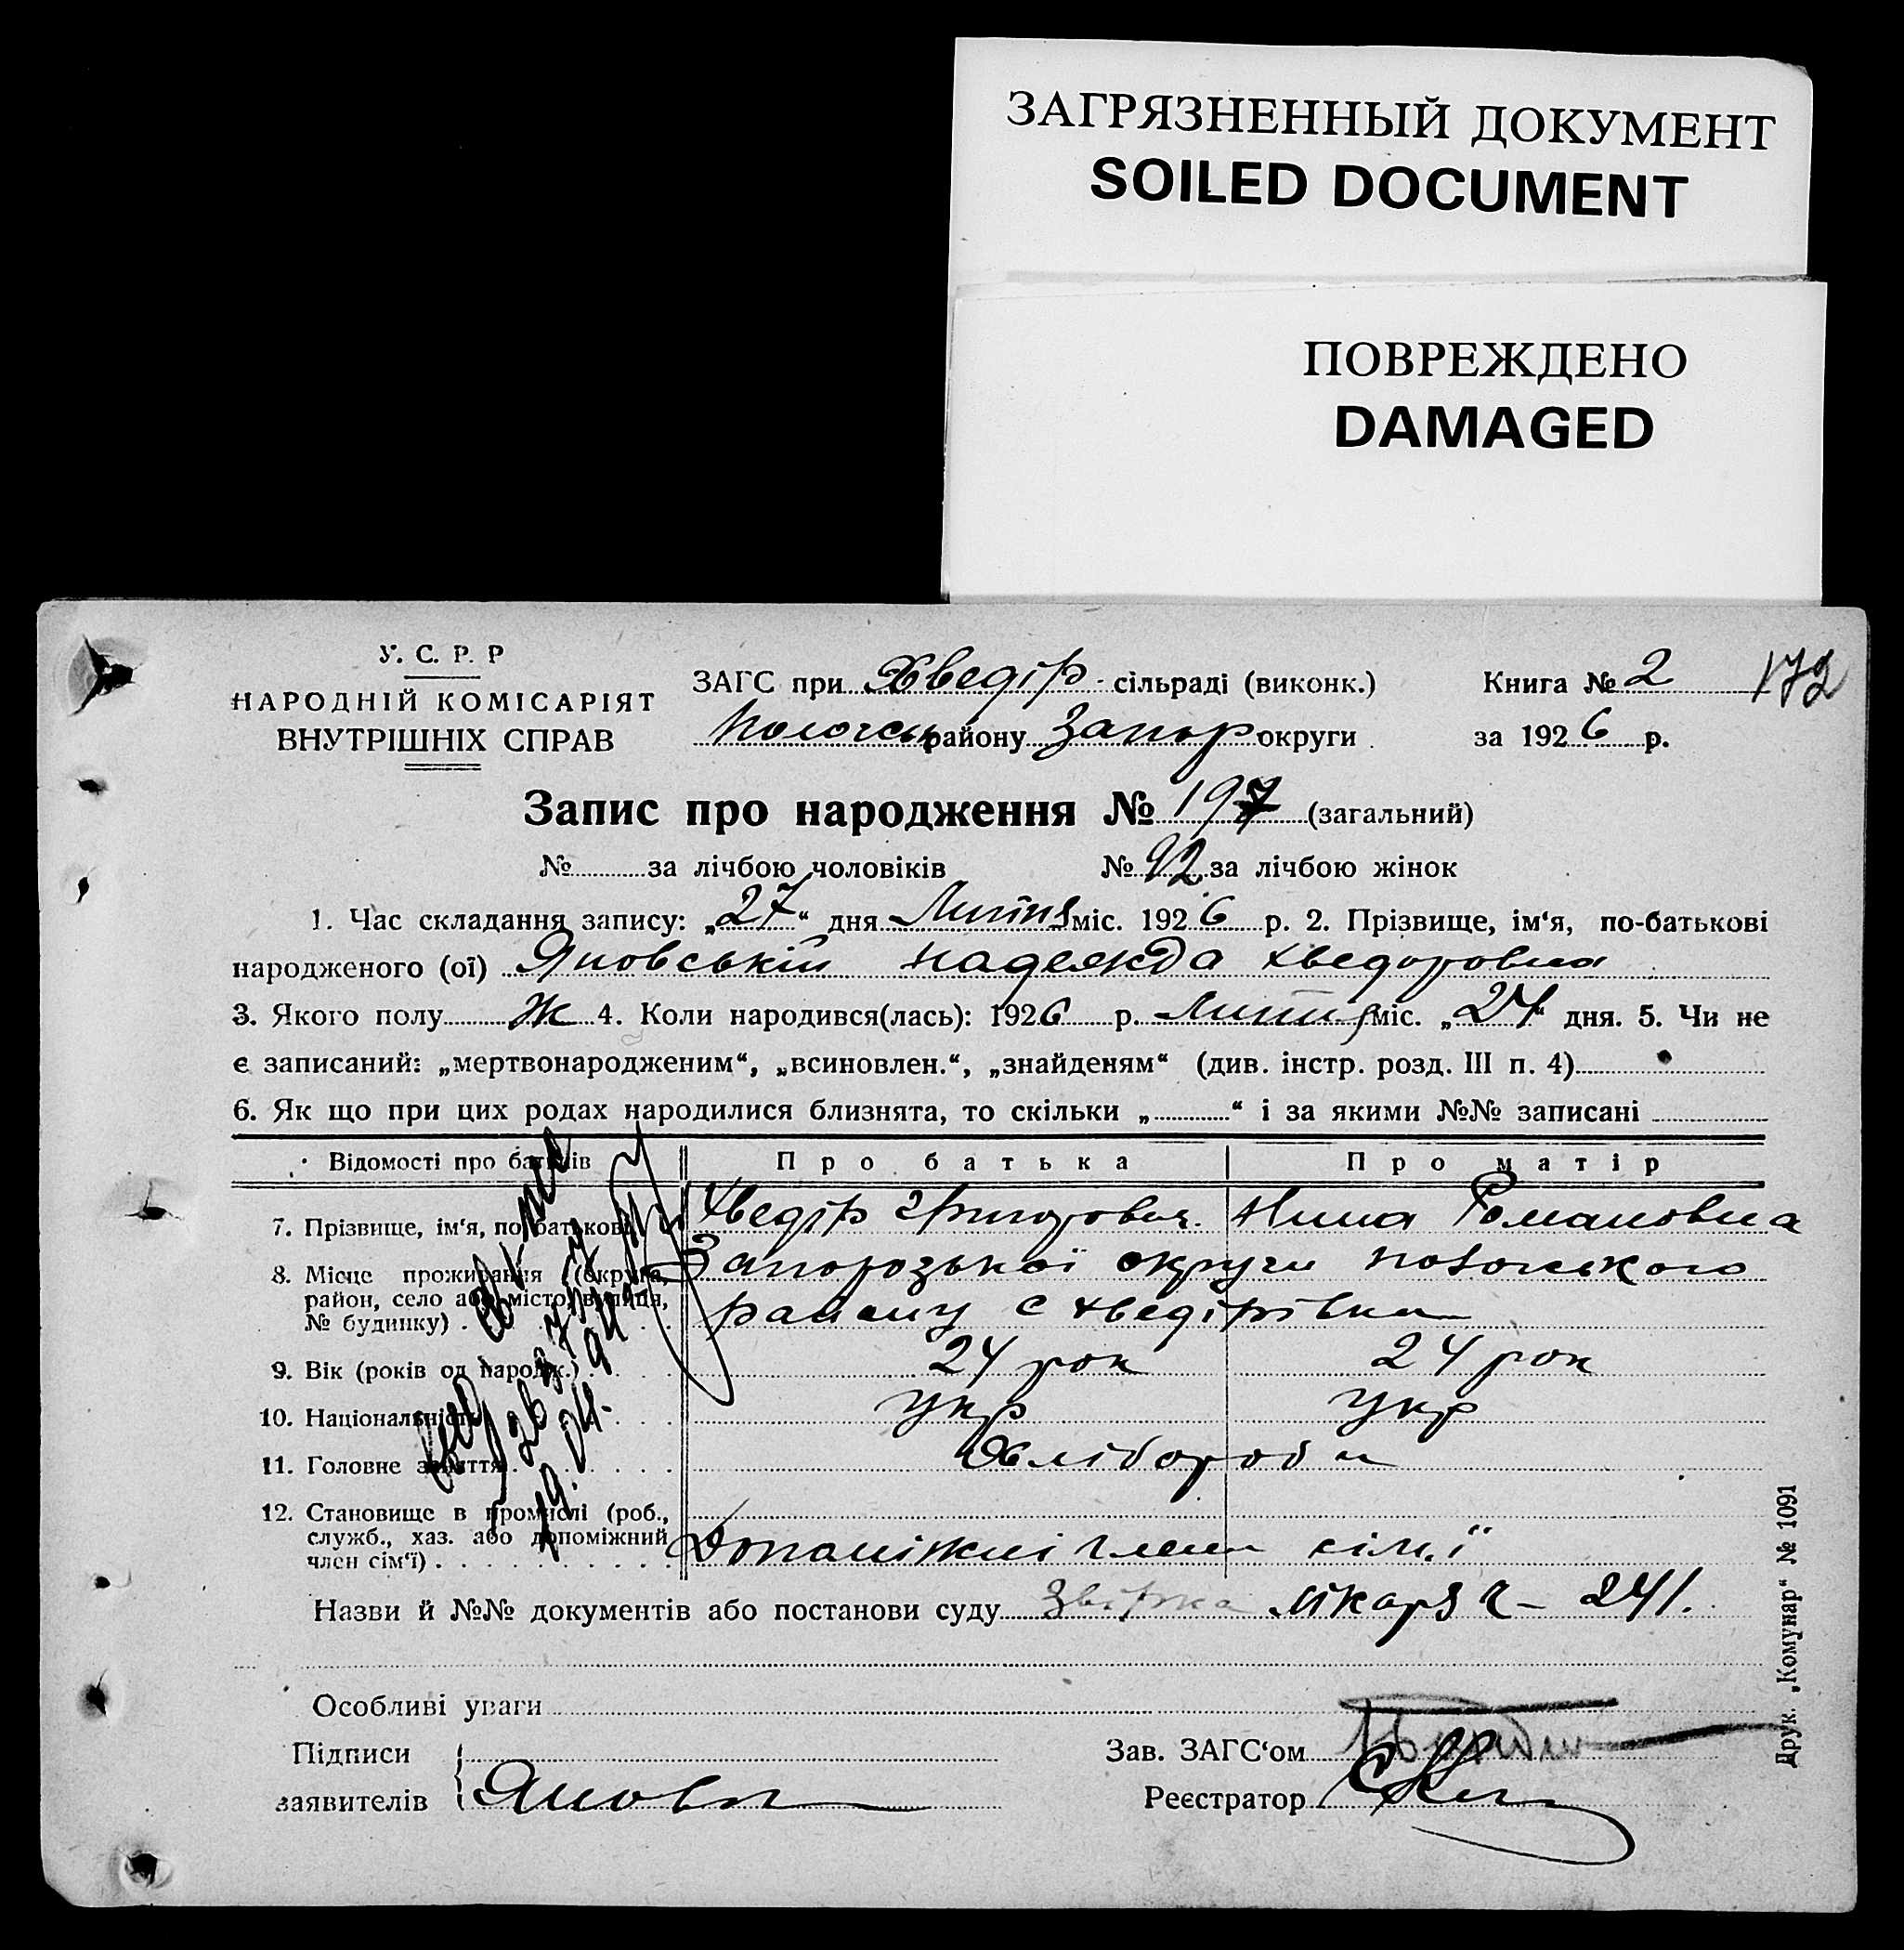 ЗАГРЯЗНЕННЫЙ ДОКУМЕНТ
SOILED DOCUMENT
ПОВРЕЖДЕНО
DAMAGED
У. С. Р. Р
НАРОДНІЙ КОМІСАРІЯТ
ВНУТРІШНІХ СПРАВ
ЗАГС при Хведір. сільраді (виконк.) Книга № 2 172
Пологськ району Запор округи за 1926 р.
Запис про народження № 197 (загальний)
№ за лічбою чоловіків № 92 за лічбою жінок
1. Час складання запису: „27“ дня Липня міс. 1926 р. 2. Прізвище, ім‘я, по-батькові
народженого (ої) Яновській Надежда Хведоровна
3. Якого полу Ж 4. Коли народився(лась): 1926 р. Липня міс. „24“ дня. 5. Чи не
є записаний: „мертвонародженим“, „всиновлен.“, „знайденям“ (див. інстр. розд. III п. 4)
6. Як що при цих родах народилися близнята, то скільки „ “ і за якими №№ записані
Відомості про батьків Про батька Про матір
7. Прізвище, ім‘я, по батькові Хведір Григорович. Нина Романовна
8. Місце проживання (округа, Запорозької округи Пологського
район, село або місто, вулиця, району с Хведірівка
№ будинку)
9. Вік (років од народж.) 24 рок 24 рок
10. Національність Укр Укр
11. Головне заняття Хлібороби
12. Становище в промислі (роб.,
служб., хаз. або допоміжний Допоміжні члени сім.ї
член сім‘ї)
Назви й №№ документів або постанови суду Звірка лікаря ч – 241.
Особливі уваги
Підписи
заявителів Янов
Зав. ЗАГС‘ом
Реєстратор
Друк. „Комунар“ № 1091